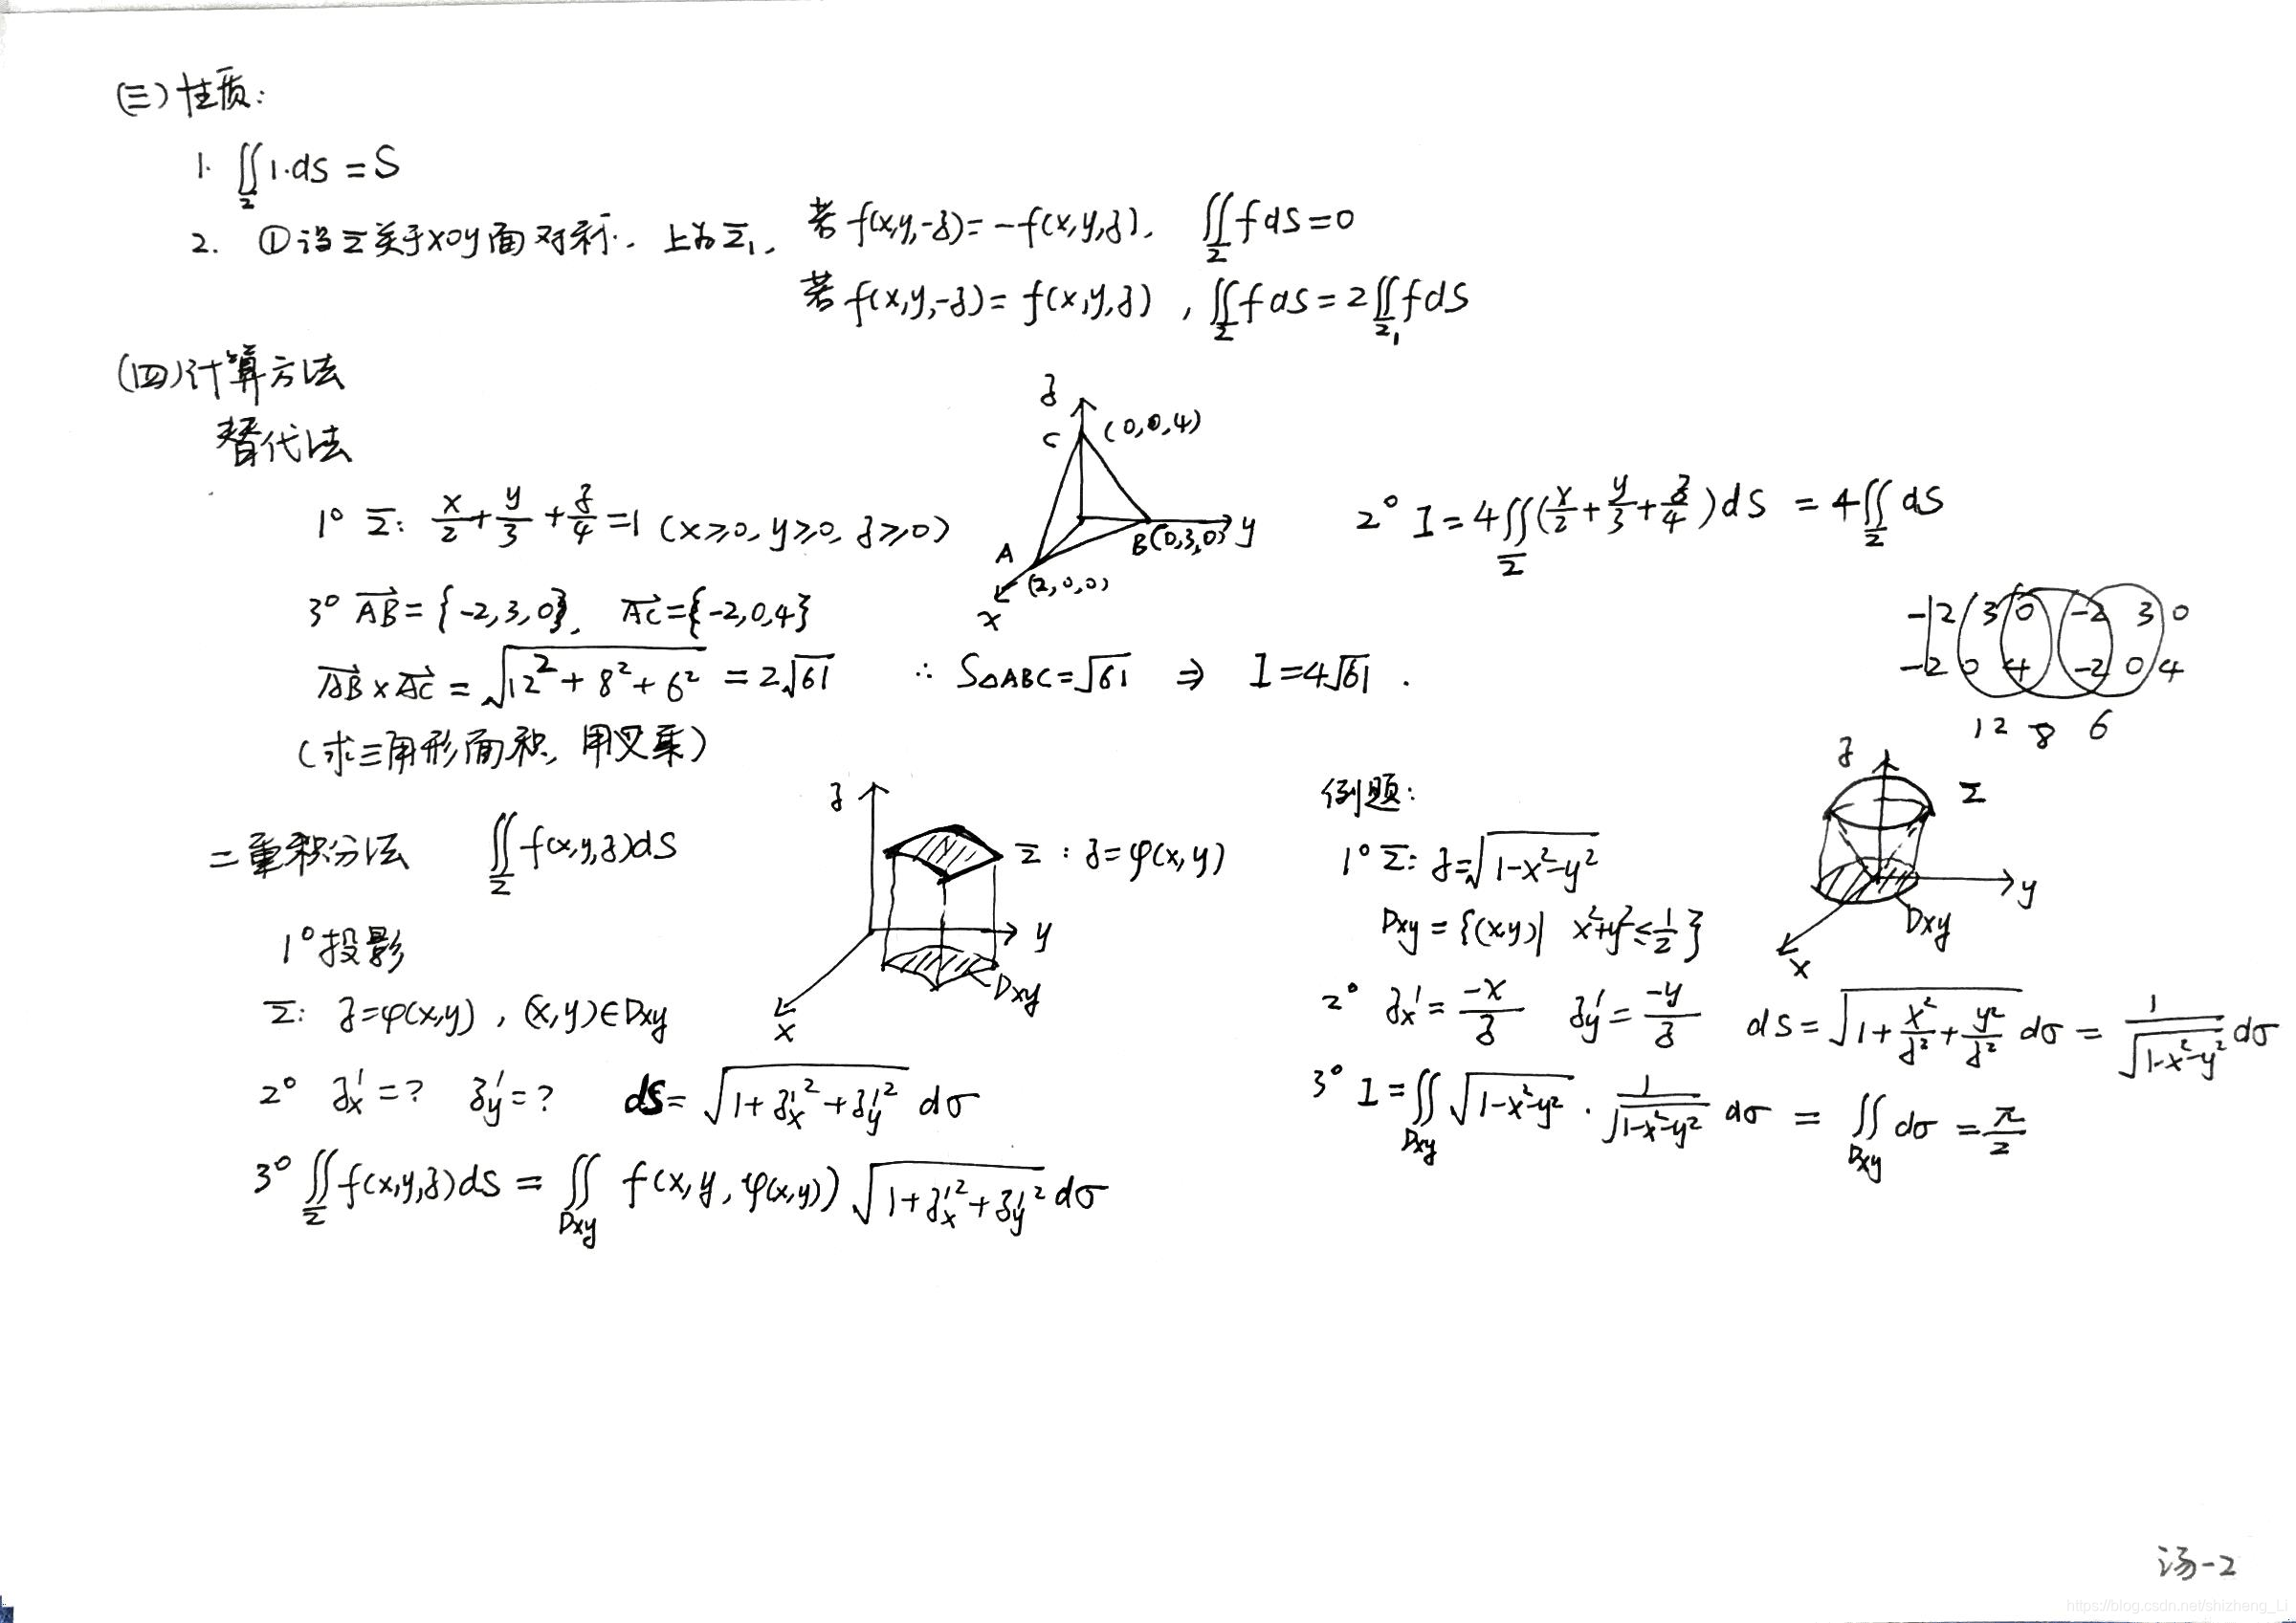 (三)性质:
1. ∬_Σ 1·dS = S
2. ①设Σ关于xoy面对称. 上为Σ₁, 若 f(x,y,-z)=-f(x,y,z). ∬_Σ fdS=0
若 f(x,y,-z)=f(x,y,z), ∬_Σ fdS=2∬_Σ₁ fdS
(四)计算方法
替代法
z
C (0,0,4)
A (2,0,0)
B(0,3,0) y
x
1° Σ: x/2+y/3+z/4=1 (x≥0, y≥0, z≥0)
2° I=4∬_Σ(x/2+y/3+z/4)dS = 4∬_Σ dS
3° AB→={-2,3,0}, AC→={-2,0,4}
-2 3 0 -2 3 0
-2 0 4 -2 0 4
12 8 6
AB→×AC→=√(12²+8²+6²)=2√61 ∴ S△ABC=√61 ⇒ I=4√61.
(求三角形面积, 用叉乘)
二重积分法 ∬_Σ f(x,y,z)dS
z
Σ: z=φ(x,y)
y
Dxy
x
1°投影
Σ: z=φ(x,y), (x,y)∈Dxy
2° z'x=? z'y=? dS=√(1+z'x²+z'y²) dσ
3° ∬_Σ f(x,y,z)dS = ∬_Dxy f(x,y,φ(x,y))√(1+z'x²+z'y²) dσ
例题:
z
Σ
y
Dxy
x
1° Σ: z=√(1-x²-y²)
Dxy={(x,y)| x²+y²≤1/2}
2° z'x=-x/z z'y=-y/z dS=√(1+x²/z²+y²/z²) dσ=1/√(1-x²-y²) dσ
3° I=∬_Dxy √(1-x²-y²)·1/√(1-x²-y²) dσ = ∬_Dxy dσ=π/2
汤-2
https://blog.csdn.net/shizheng_Li